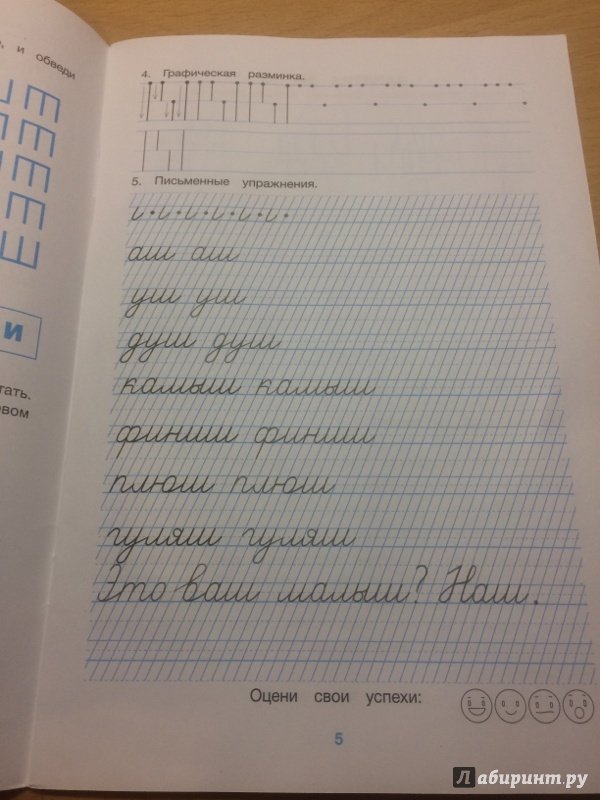 е, и обведи
и
тать.
овом
4. Графическая разминка.
5. Письменные упражнения.
и·и·и·и·и·и·
аш аш
уш уш
душ душ
камыш камыш
финиш финиш
плюш плюш
гуляш гуляш
Это ваш малыш? Наш.
Оцени свои успехи:
5
Лабиринт.ру